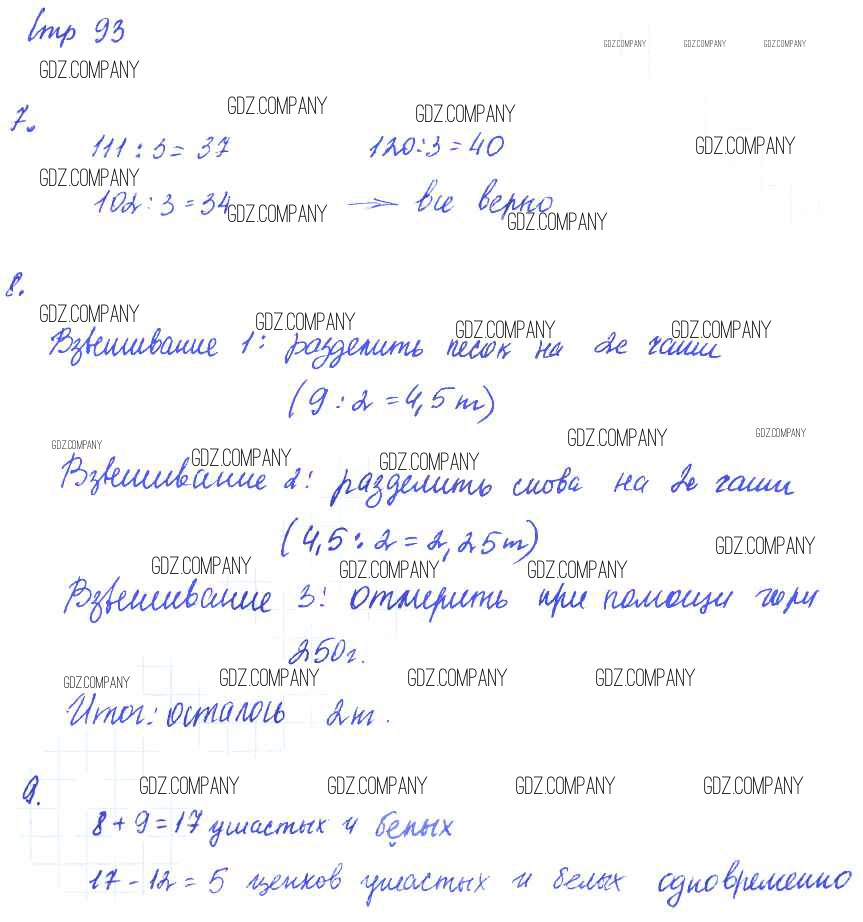 Стр 93
GDZ.COMPANY GDZ.COMPANY GDZ.COMPANY
GDZ.COMPANY
GDZ.COMPANY GDZ.COMPANY
7.
111 : 3 = 37 120 : 3 = 40 GDZ.COMPANY
GDZ.COMPANY
102 : 3 = 34 → все верно
GDZ.COMPANY GDZ.COMPANY
8.
GDZ.COMPANY GDZ.COMPANY GDZ.COMPANY GDZ.COMPANY
Взвешивание 1: разделить песок на 2е чаши
(9 : 2 = 4,5 кг)
GDZ.COMPANY GDZ.COMPANY GDZ.COMPANY
GDZ.COMPANY GDZ.COMPANY
Взвешивание 2: разделить снова на 2е чаши
(4,5 : 2 = 2,25 кг)
GDZ.COMPANY
GDZ.COMPANY GDZ.COMPANY GDZ.COMPANY
Взвешивание 3: отмерить при помощи гири
250г.
GDZ.COMPANY GDZ.COMPANY GDZ.COMPANY GDZ.COMPANY
Итог: осталось 2кг.
9.
GDZ.COMPANY GDZ.COMPANY GDZ.COMPANY GDZ.COMPANY
8 + 9 = 17 ушастых и белых
17 - 12 = 5 щенков ушастых и белых одновременно